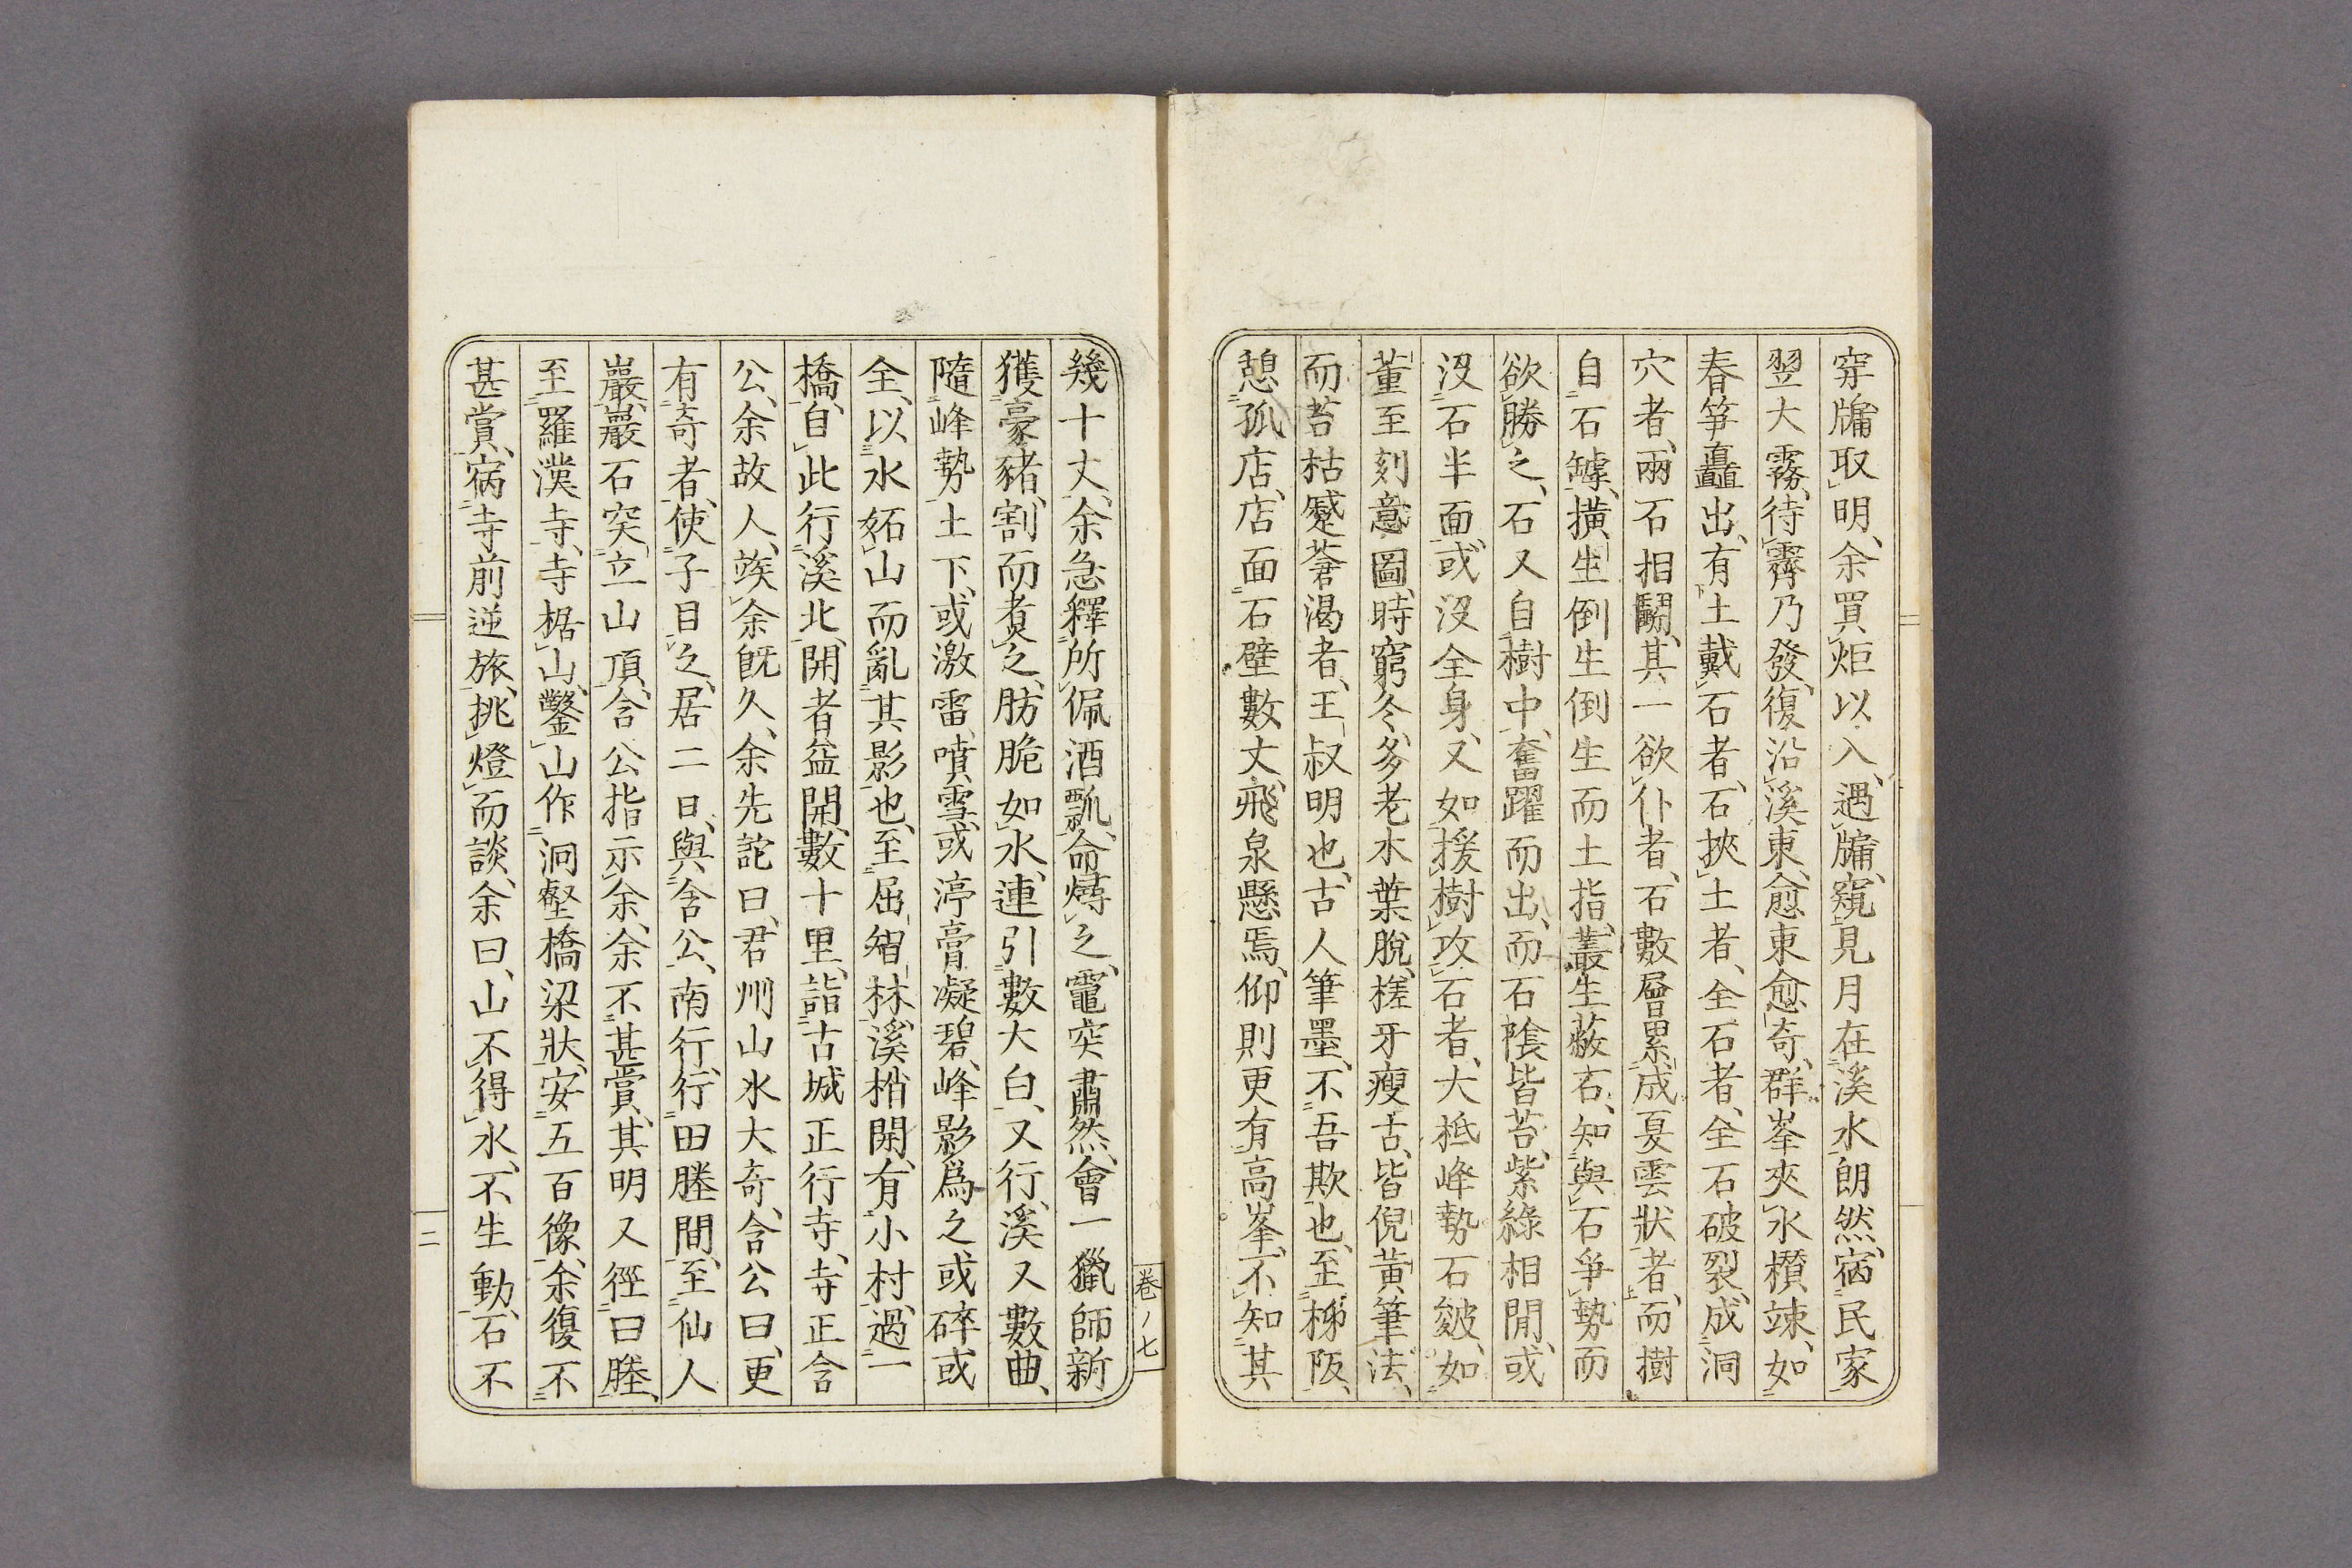 穿牖取明、余買炬以入、遇牖、窺見月在溪水朗然、宿民家
翌大霧、待霽乃發、復沿溪東、愈東愈奇、群峯夾水、櫕竦、如
春笋矗出、有土戴石者、石挾土者、全石者、全石破裂、成洞
穴者、兩石相鬭、其一欲仆者、石數層累、成夏雲狀者、而樹
自石罅、横生倒生倒生而土指、叢生蔽石、知與石爭勢而
欲勝之、石又自樹中、奮躍而出、而石陰皆苔、紫綠相間、或
沒石半面、或沒全身、又如援樹攻石者、大抵峰勢石皴、如
董至刻意圖、時窮冬、多老木葉脫、槎牙瘦古、皆倪黃筆法、
而苔枯蹙蒼渴者、王叔明也、古人筆墨、不吾欺也、至梯阪、
憩孤店、店面石壁數丈、飛泉懸焉、仰則更有高峯、不知其
幾十丈、余急釋所佩酒瓢、命燖之、竈突肅然、會一獵師新
獲豪豬、割而煮之、肪脆如水、連引數大白、又行、溪又數曲、
隨峰勢土下、或激雷噴雪、或渟膏凝碧、峰影爲之或碎或
全、以水妬山而亂其影也、至屈智林、溪梢開、有小村、過一
橋、自此行溪北、開者益開、數十里、詣古城正行寺、寺正含
公、余故人、竢余旣久、余先詑曰、君州山水大奇、含公曰、更
有奇者、使子目之、居二日、與含公、南行、行田塍間、至仙人
巖、巖石突立山頂、含公指示余、余不甚賞、其明又徑曰塍、
至羅漢寺、寺椐山、鑿山作洞壑橋梁狀、安五百像、余復不
甚賞、宿寺前逆旅、挑燈而談、余曰、山不得水、不生動、石不
卷ノ七
二